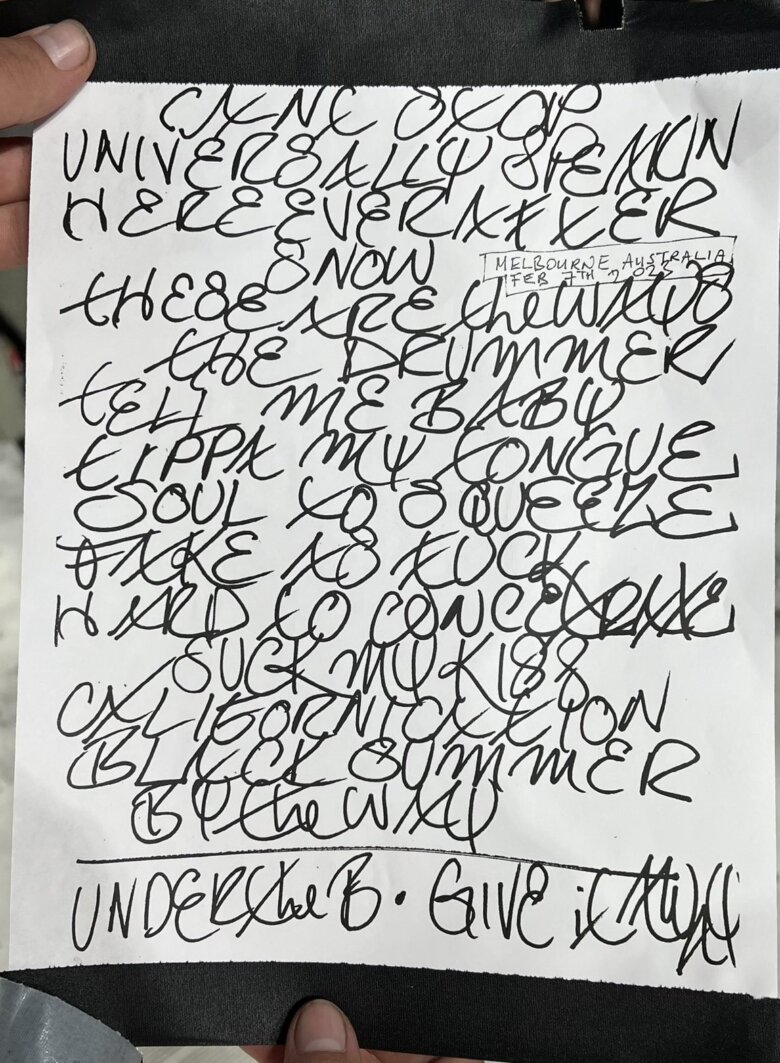 CANT STOP
UNIVERSALLY SPEAKIN
HERE EVER AFTER
SNOW
MELBOURNE, AUSTRALIA
FEB 7TH 2023
THESE ARE the WAYS
THE DRUMMER
TELL ME BABY
TIPPA MY TONGUE
SOUL TO SQUEEZE
FAKE AS FUCK
HARD TO CONCENTRATE
SUCK MY KISS
CALIFORNICATION
BLACK SUMMER
BY the WAY
UNDER the B • GIVE iT AWAY